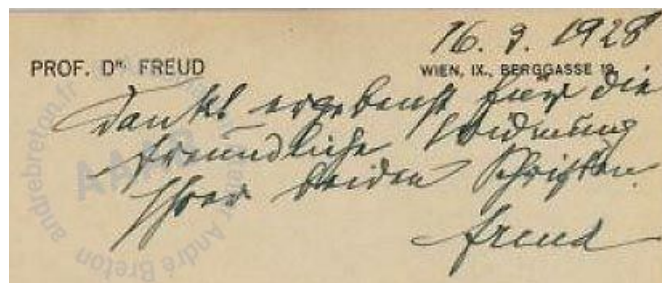 16. 3. 1928
PROF. Dr. FREUD WIEN, IX., BERGGASSE 19.
dankt ergebenst für die
freundliche Widmung
Ihrer beiden Schriften.
Freud
andrebreton.fr
AAAB
Atelier André Breton